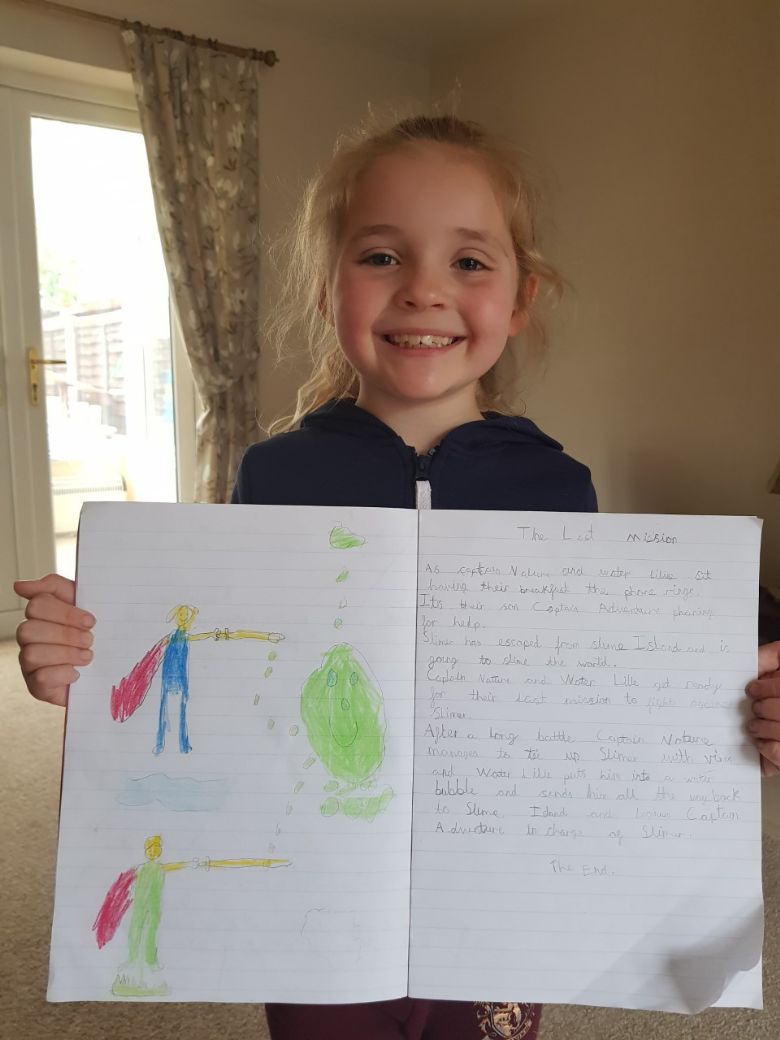 The Last mission
As captain Nature and water Lillie sit
having their breakfast the phone rings.
It's their son Captain Adventure phoning
for help.
Slimer has escaped from slime Island and is
going to slime the world.
Captain Nature and Water Lillie get ready
for their Last mission to fight against
Slimer.
After a long battle Captain Nature
manages to tie up Slimer with vines
and Water Lillie puts him into a water
bubble and sends him all the way back
to Slime Island and leaves Captain
Adventure in charge of Slimer.
The End.